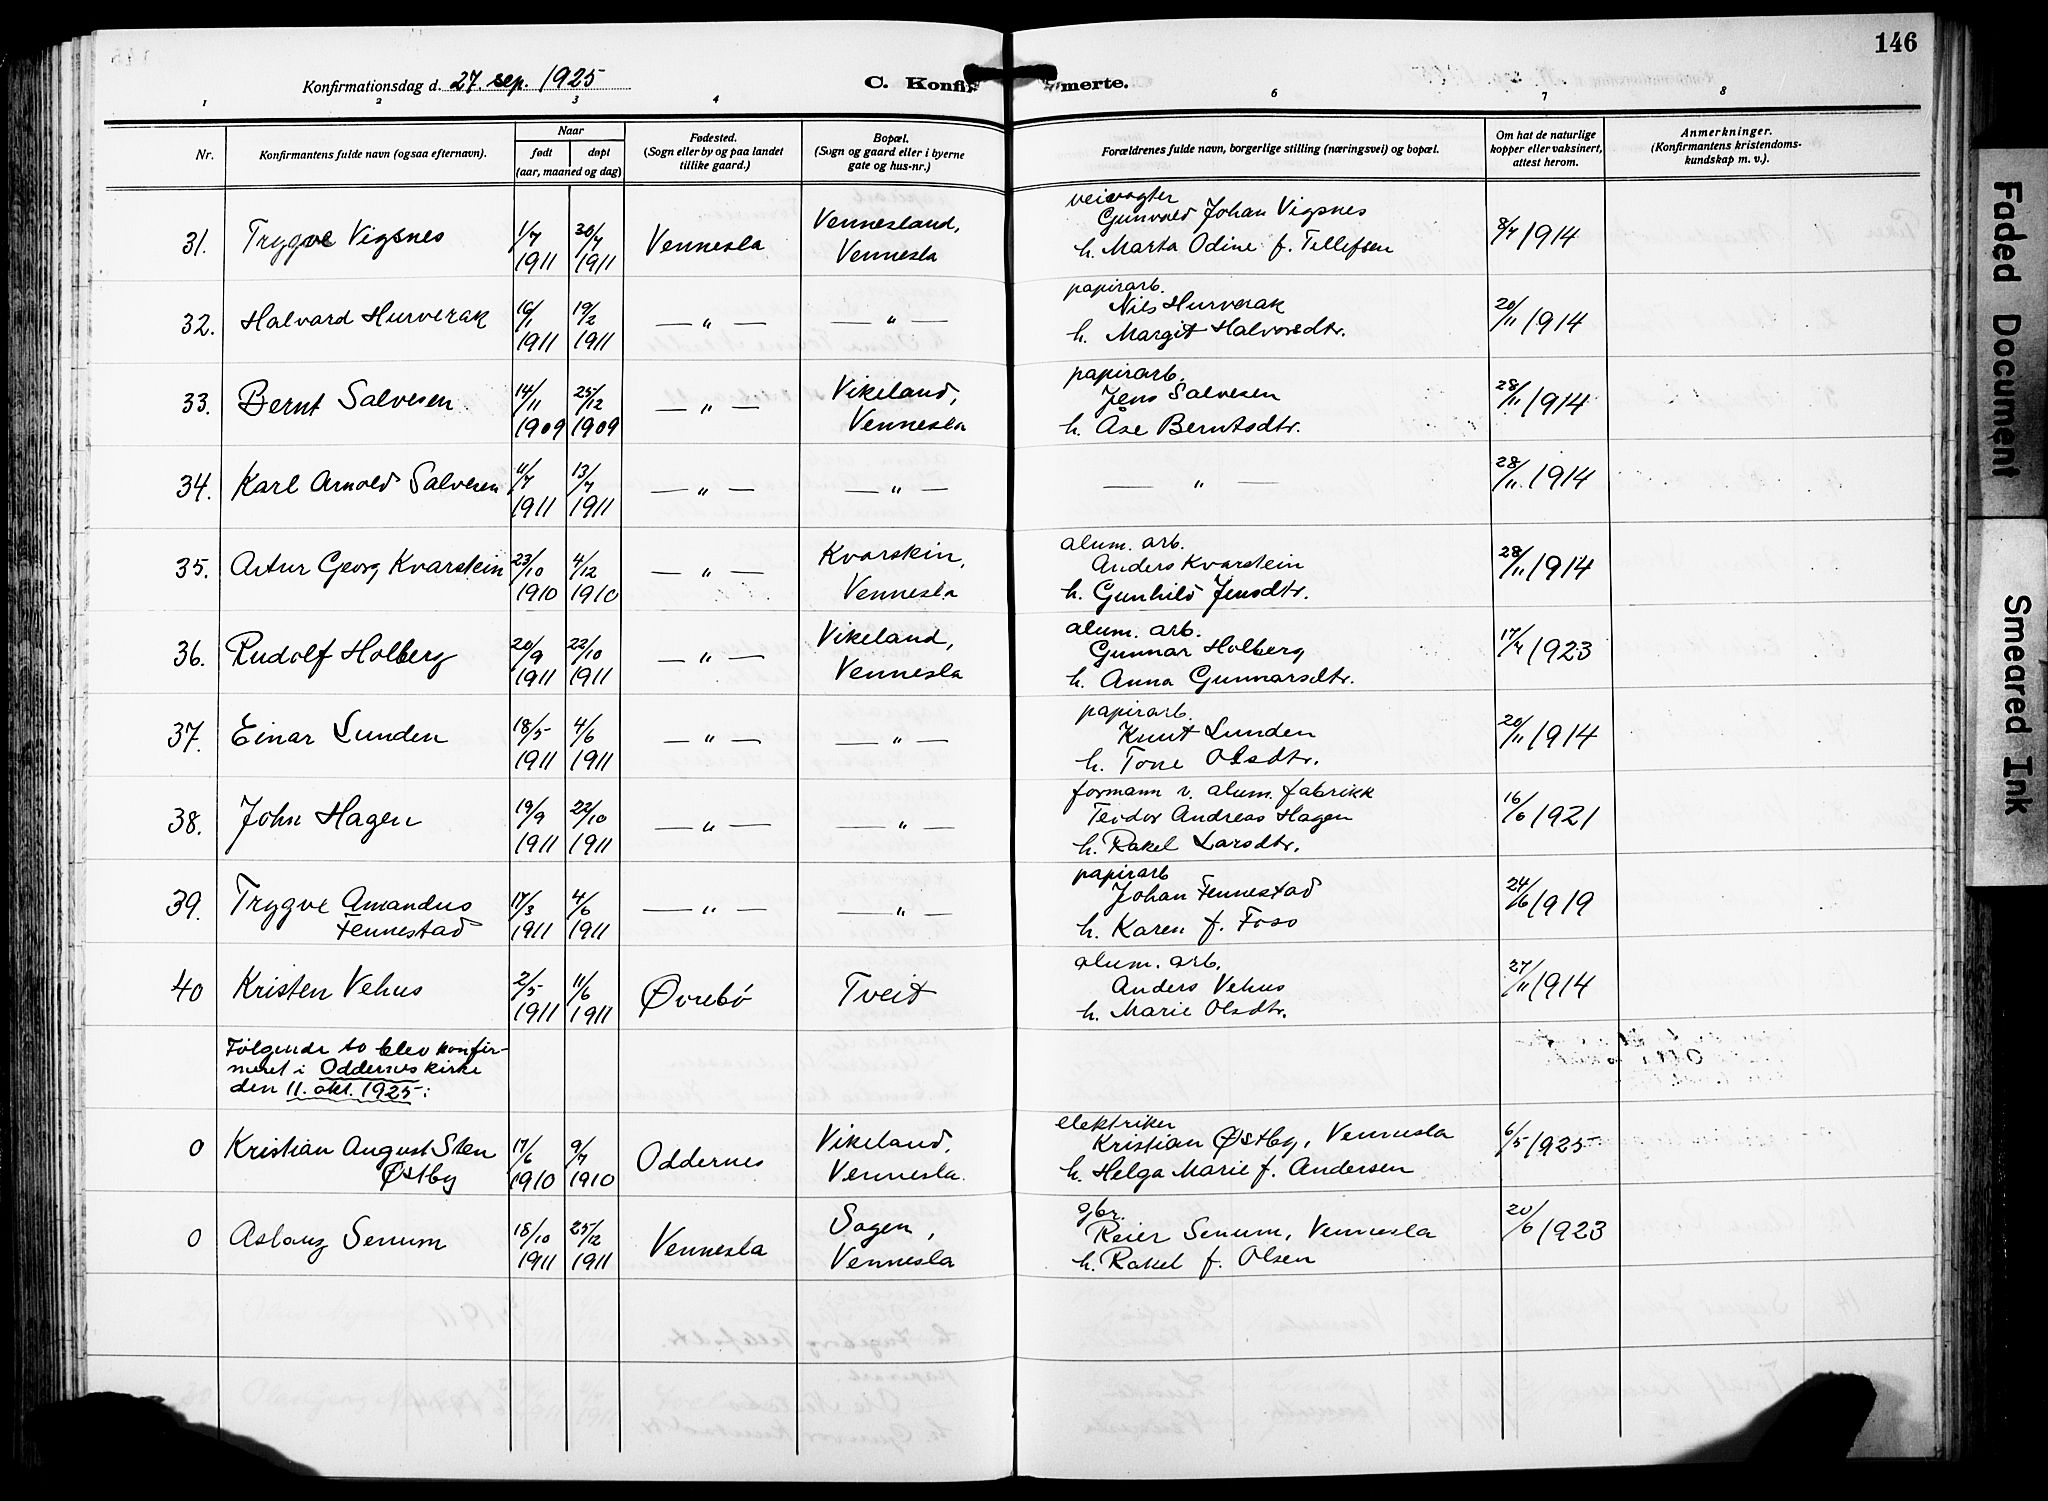 146
Konfirmationsdag d. 27. sep. 1925
C. Konfir merte.
1 2 3 4 5 6 7 8
Nr.
Konfirmantens fulde navn (ogsaa efternavn).
Naar
født døpt
(aar, maaned og dag)
Fødested.
(Sogn eller by og paa landet
tillike gaard.)
Bopæl.
(Sogn og gaard eller i byerne
gate og hus-nr.)
Forældrenes fulde navn, borgerlige stilling (næringsvei) og bopæl.
Om hat de naturlige
kopper eller vaksinert,
attest herom.
Anmerkninger.
(Konfirmantens kristendoms-
kundskap m. v.).
31. Trygve Vigsnes 1/7 1911 30/7 1911 Vennesla Vennesland, Vennesla
veivogter
Gunvald Johan Vigsnes
h. Marta Odine f. Tellefsen
8/7 1914
32. Halvard Hurverak 16/1 1911 19/2 1911 — " — — " —
papirarb.
Nils Hurverak
h. Margit Halvorsdtr.
20/11 1914
33. Bernt Salvesen 14/11 1909 25/12 1909 — " — Vikeland, Vennesla
papirarb.
Jens Salvesen
h. Åse Berntsdtr.
28/11 1914
34. Karl Arnold Salvesen 11/7 1911 13/7 1911 — " — — " —
— " —
28/11 1914
35. Artur Georg Kvarstein 23/10 1910 4/12 1910 — " — Kvarskin, Vennesla
alum. arb.
Anders Kvarstein
h. Gunhild Jensdtr.
28/11 1914
36. Rudolf Holberg 20/9 1911 22/10 1911 — " — Vikeland, Vennesla
alum. arb.
Gunnar Holberg
h. Anna Gunnarsdtr.
17/7 1923
37. Einar Lunden 18/5 1911 4/6 1911 — " — — " —
papirarb.
Knut Lunden
h. Tone Olsdtr.
20/11 1914
38. John Hagen 19/9 1911 22/10 1911 — " — — " —
formann v. alum. fabrikk
Teodor Andreas Hagen
h. Rakel Larsdtr.
16/6 1921
39. Trygve Amandus
Fennestad 17/3 1911 4/6 1911 — " — — " —
papirarb
Johan Fennestad
h. Karen f. Foso
24/6 1919
40 Kristen Vehus 2/5 1911 11/6 1911 Øvrebø Tveit
alum. arb.
Anders Vehus
h. Marie Olsdtr.
27/11 1914
Følgende to blev konfir-
meret i Oddernes kirke
den 11. okt. 1925:
0 Kristian August Sten
Østby 17/6 1910 9/7 1910 Oddernes Vikeland, Vennesla
elektriker
Kristian Østby, Vennesla
h. Helga Marie f. Andersen
6/5 1925
0 Aslaug Senum 18/10 1911 25/12 1911 Vennesla Sagen, Vennesla
gbr.
Reier Senum, Vennesla
h. Rakel f. Olsen
20/6 1923
Faded Document
Smeared Ink